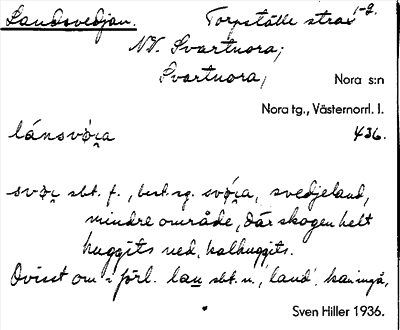 Landsvedjan. Torpställe strax 1-2.
NV. Svartnora;
Svartnora, Nora s:n
Nora tg., Västernorrl. l.
lánsvø̀i̯a 436.
svøi̯ sbt. f., best. sg. svǿi̯a, svedjeland,
mindre område, där skogen helt
huggits ned, kalhuggits.
Ovisst om i förl. lan sbt. n., 'land', kan ingå.
Sven Hiller 1936.